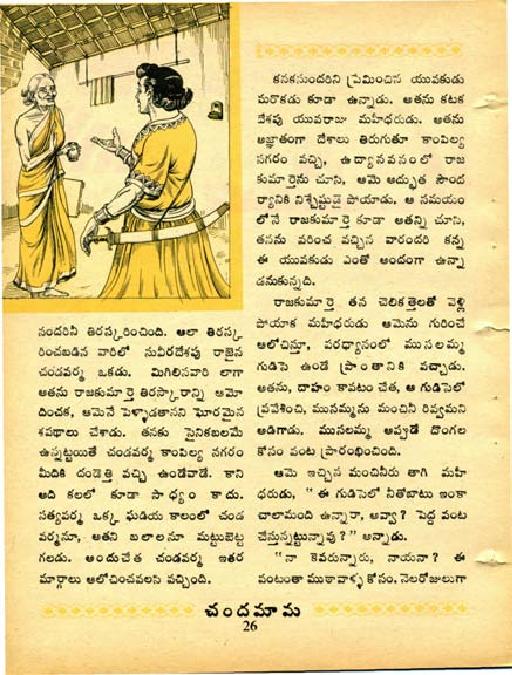 సందరినీ తిరస్కరించింది. అలా తిరస్క
రించబడిన వారిలో సువీరదేశపు రాజైన
చండవర్మ ఒకడు. మిగిలినవారి లాగా
అతను రాజకుమార్తె తిరస్కారాన్ని ఆమో
దించక, ఆమెనే పెళ్ళాడతానని ఘోరమైన
శపథాలు చేశాడు. తనకు సైనికబలమే
ఉన్నట్టయితే చండవర్మ కాంపిల్య నగరం
మీదికి దండెత్తి వచ్చి ఉండేవాడే. కాని
అది కలలో కూడా సాధ్యం కాదు.
సత్యవర్మ ఒక్క ఘడియ కాలంలో చండ
వర్మనూ, అతని బలాలనూ మట్టుబెట్ట
గలడు. అందుచేత చండవర్మ ఇతర
మార్గాలు ఆలోచించవలసి వచ్చింది.
కనకసుందరిని ప్రేమించిన యువకుడు
మరొకడు కూడా ఉన్నాడు. అతను కటక
దేశపు యువరాజు మహీధరుడు. అతను
అజ్ఞాతంగా దేశాలు తిరుగుతూ కాంపిల్య
నగరం వచ్చి, ఉద్యానవనంలో రాజ
కుమార్తెను చూసి, ఆమె అద్భుత సౌంద
ర్యానికి నిశ్చేష్టుడై పోయాడు. ఆ సమయం
లోనే రాజకుమార్తె కూడా అతన్ని చూసి,
తనను వరించ వచ్చిన వారందరి కన్న
ఈ యువకుడు ఎంతో అందంగా ఉన్నా
డనుకున్నది.
రాజకుమార్తె తన చెలికత్తెలతో వెళ్లి
పోయాక మహీధరుడు ఆమెను గురించే
ఆలోచిస్తూ, పరధ్యానంలో ముసలమ్మ
గుడిసె ఉండే ప్రాంతానికి వచ్చాడు.
అతను, దాహం కావటం చేత, ఆ గుడిసెలో
ప్రవేశించి, ముసమ్మను మంచినీ రివ్వమని
అడిగాడు. ముసలమ్మ అప్పుడే దొంగల
కోసం వంట ప్రారంభించింది.
ఆమె ఇచ్చిన మంచినీరు తాగి మహీ
ధరుడు, " ఈ గుడిసెలో నీతోబాటు ఇంకా
చాలామంది ఉన్నారా, అవ్వా? పెద్ద వంట
చేస్తున్నట్టున్నావు ? " అన్నాడు.
" నా కెవరున్నారు, నాయనా ? ఈ
వంటంతా ముఠావాళ్ళ కోసం. నెలరోజులుగా
చందమామ
26